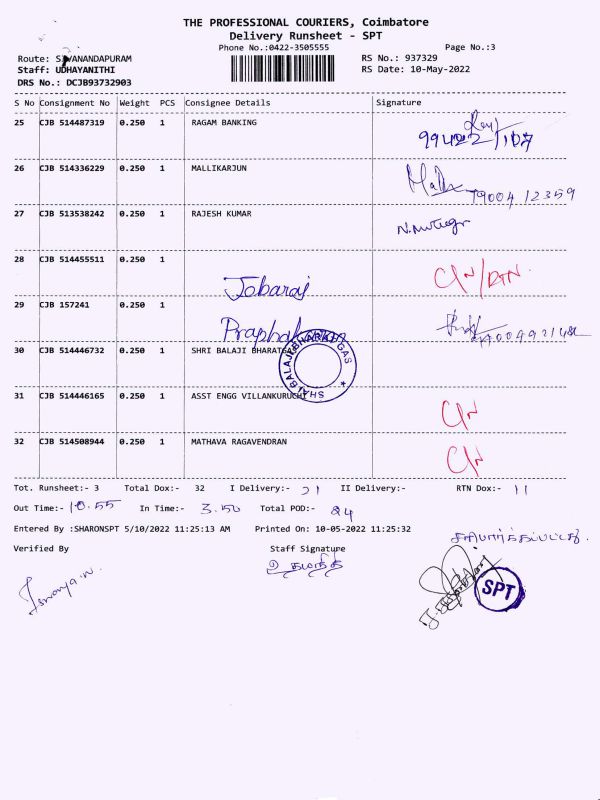 THE PROFESSIONAL COURIERS, Coimbatore
Delivery Runsheet - SPT
Phone No.:0422-3505555 Page No.:3
Route: SIVANANDAPURAM RS No.: 937329
Staff: UDHAYANITHI RS Date: 10-May-2022
DRS No.: DCJB93732903
S No Consignment No Weight PCS Consignee Details Signature
25 CJB 514487319 0.250 1 RAGAM BANKING
26 CJB 514336229 0.250 1 MALLIKARJUN
27 CJB 513538242 0.250 1 RAJESH KUMAR
28 CJB 514455511 0.250 1 Jobaraj
29 CJB 157241 0.250 1 Praphakaran
30 CJB 514446732 0.250 1 SHRI BALAJI BHARATGAS
31 CJB 514446165 0.250 1 ASST ENGG VILLANKURUCHI
32 CJB 514508944 0.250 1 MATHAVA RAGAVENDRAN
Tot. Runsheet:- 3 Total Dox:- 32 I Delivery:- 21 II Delivery:- RTN Dox:- 11
Out Time:- 10.55 In Time:- 3.50 Total POD:- 24
Entered By :SHARONSPT 5/10/2022 11:25:13 AM Printed On: 10-05-2022 11:25:32
Verified By Staff Signature
SPT